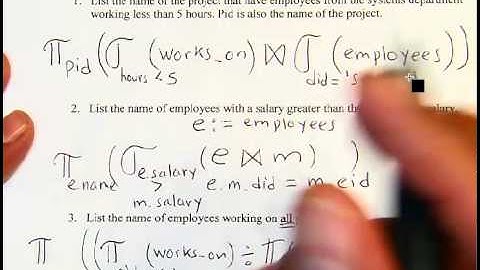 1. List the name of the project that have employees from the systems department
working less than 5 hours. Pid is also the name of the project.
π pid (σ hours < 5 (works_on) ⋈ σ did = 's (employees))
2. List the name of employees with a salary greater than salary.
e := employees
π ename (σ e.salary > m.salary (e ⋈ e.m.did = m.eid m))
3. List the name of employees working on all
π ((π (works_on) ÷ π